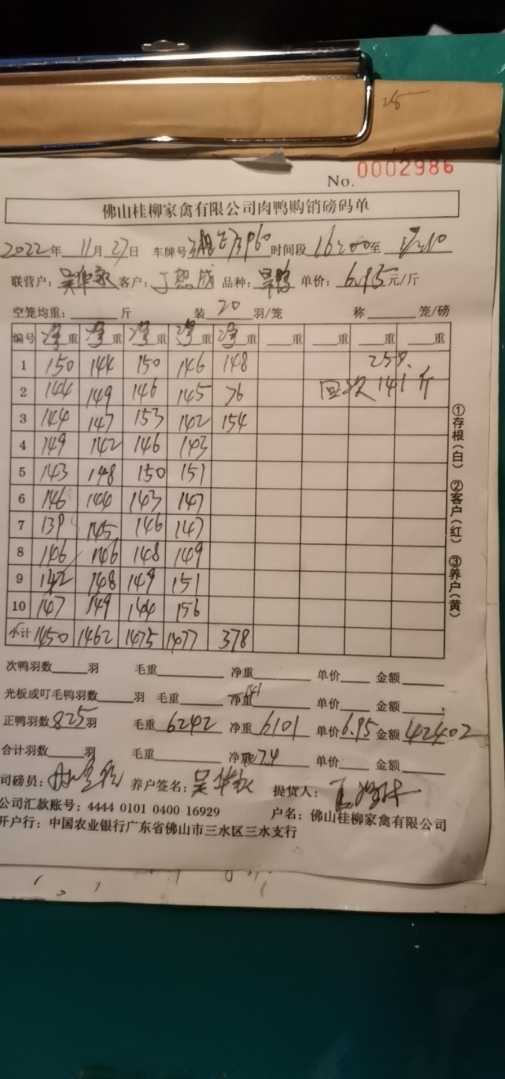 No. 0002986
佛山桂柳家禽有限公司肉鸭购销磅码单
2022年 11月 27日 车牌号 时间段 16:00至
联营户: 吴华敏 客户: 丁恕成 品种: 单价: 6.95元/斤
空笼均重: 斤 装 20 羽/笼 称 笼/磅
编号 净重 净重 净重 净重 净重 重 重 重
1 150 144 150 146 148
2 144 149 146 145 76 141斤
3 144 147 153 142 154
4 149 142 146 143
5 143 148 150 151
6 146 144 143 147
7 139 145 146 147
8 146 146 148 149
9 142 148 149 151
10 147 149 144 156
小计 1450 1462 1475 1477 378
①存根(白) ②客户(红) ③养户(黄)
次鸭羽数 羽 毛重 净重 单价 金额
光板或叮毛鸭羽数 羽 毛重 净重 单价 金额
正鸭羽数 825 羽 毛重 6242 净重 6101 单价 6.95 金额 42402
合计羽数 羽 毛重 净重 单价 金额
司磅员: 养户签名: 提货人:
公司汇款账号: 4444 0101 0400 16929 户名: 佛山桂柳家禽有限公司
开户行: 中国农业银行广东省佛山市三水区三水支行